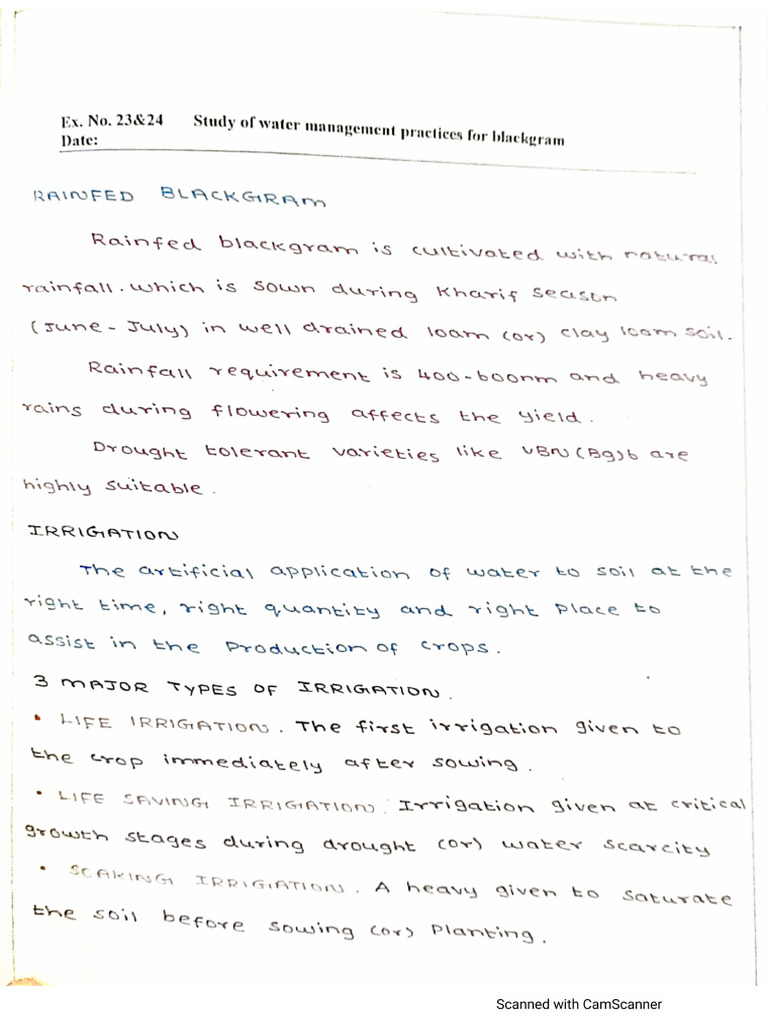 Ex. No. 23&24 Study of water management practices for blackgram
Date:
RAINFED BLACKGRAM
Rainfed blackgram is cultivated with natural
rainfall. which is sown during Kharif season
(June - July) in well drained loam (or) clay loam soil.
Rainfall requirement is 400-600nm and heavy
rains during flowering affects the yield.
Drought tolerant varieties like VBN(Bg)6 are
highly suitable.
IRRIGATION
The artificial application of water to soil at the
right time, right quantity and right place to
assist in the production of crops.
3 MAJOR TYPES OF IRRIGATION.
• LIFE IRRIGATION. The first irrigation given to
the crop immediately after sowing.
• LIFE SAVING IRRIGATION. Irrigation given at critical
growth stages during drought (or) water scarcity
• SOAKING IRRIGATION. A heavy given to saturate
the soil before sowing (or) planting.
Scanned with CamScanner